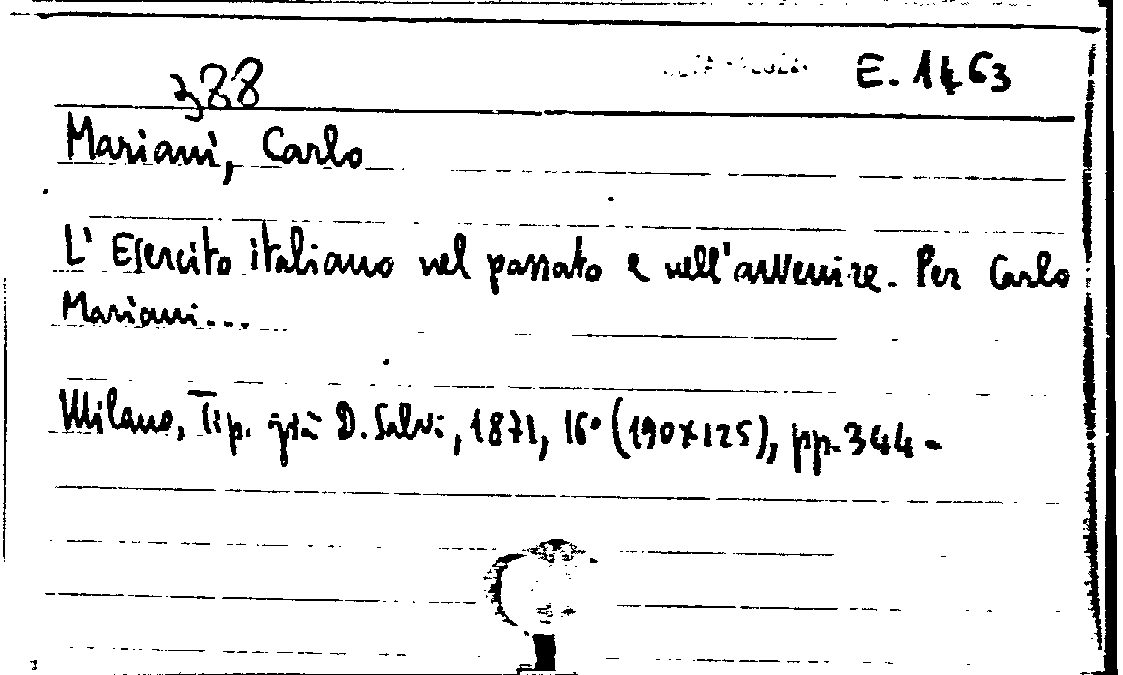 388 E. 1463
Mariani, Carlo
L' Esercito italiano nel passato e nell'avvenire. Per Carlo
Mariani...
Milano, Tip. già D. Salvi, 1871, 16° (190x125), pp. 344-